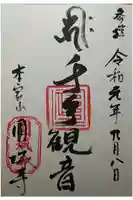 奉拝 令和元年九月八日
千手観音
本宮山 圓
寺